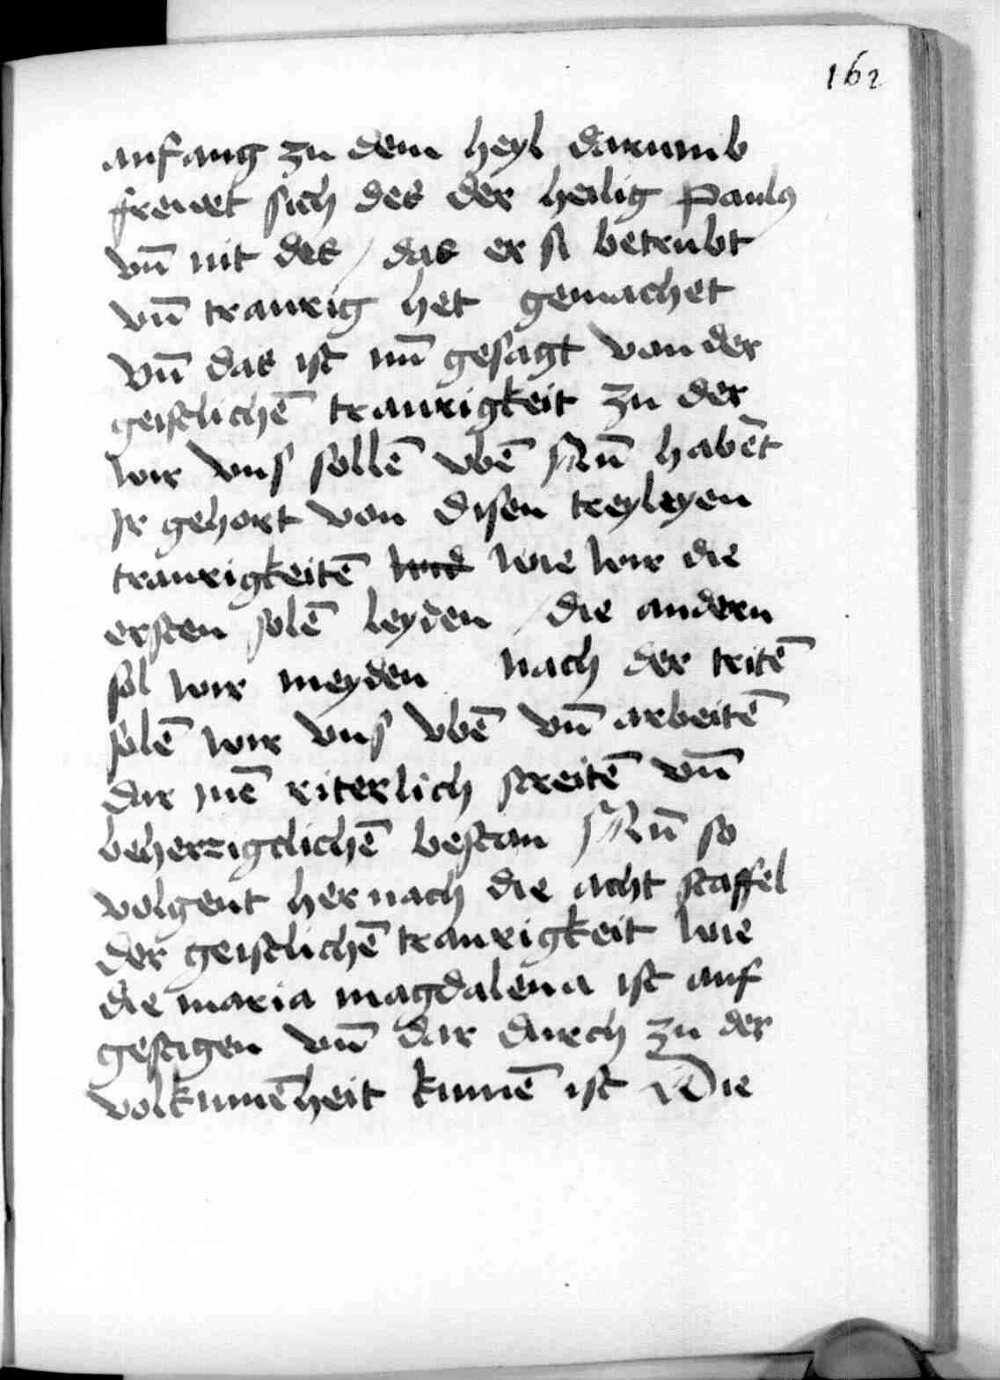 162
anfang zu dem heyl darumb
frewet sich des der heilig Paulus
vn̄ nit des / das er si betrubt
vn̄ traurig het gemachet
Vn̄ das ist nū gesagt von der
geistlichē traurigkeit zu der
wir vns sollē vbē Nū habēt
Ir gehort von disen treyleyen
traurigkeitē wie wir die
ersten solē leyden / die andern
sol wir meyden nach der tritē
solē wir vns vbē vn̄ arbeitē
dar inē riterlich streitē vn̄
beherzigclichē bestan Nū so
volgent her nach die acht staffel
der geistlichē traurigkeit wie
die maria magdalena ist auf
gestigen vn̄ dar durch zu der
volkumēheit kumē ist Die